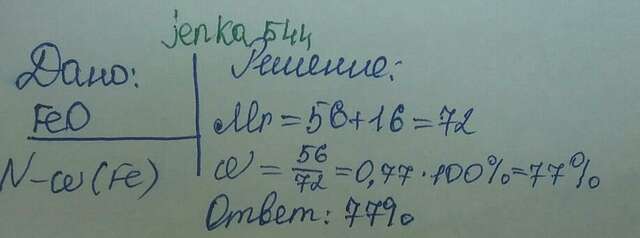 jenka544
Дано:
FeO
N-ω(Fe)
Решение:
Mr=56+16=72
ω=56/72=0,77·100%=77%
Ответ: 77%